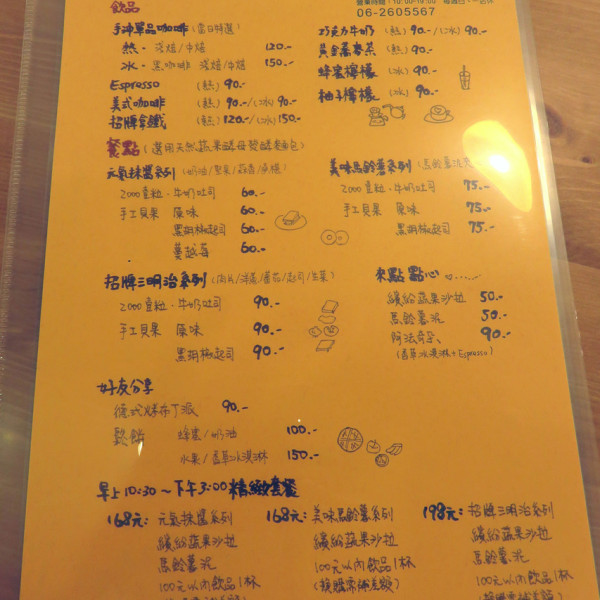 飲品
營業時間：10:00-18:00
06-2605567
手沖單品咖啡(當日特選)
熱-淺焙/中焙 120.-
冰-黑咖啡 淺焙/中焙 150.-
Espresso (熱) 90.-
美式咖啡 (熱) 90.-/(冰) 90.-
招牌拿鐵 (熱) 120.-/(冰) 150.-
巧克力牛奶 (熱) 90.-/(冰) 90.-
黃金蕎麥茶 (熱) 90.-/(冰) 90.-
蜂蜜檸檬 (冰) 90.-
柚子檸檬 (冰) 90.-
餐點(選用天然蔬果酵母發酵麵包)
元氣抹醬系列(奶油/堅果/蒜香/
2000壹粒·牛奶吐司 60.-
手工貝果 原味 60.-
黑胡椒起司 60.-
蔓越莓 60.-
美味馬鈴薯系列(馬鈴薯泥
2000壹粒·牛奶吐司 75.-
手工貝果 原味 75.-
黑胡椒起司 75.-
招牌三明治系列(肉片/洋蔥/番茄/起司/生菜)
2000壹粒·牛奶吐司 90.-
手工貝果 原味 90.-
黑胡椒起司 90.-
來點點心......
繽紛蔬果沙拉 50.-
馬鈴薯泥 50.-
阿法奇朵 90.-
(香草冰淇淋+Espresso)
好友分享
德式烤布丁派 90.-
鬆餅 蜂蜜/奶油 100.-
水果/香草冰淇淋 150.-
早上10:30~下午3:00精緻套餐
168元：元氣抹醬系列
繽紛蔬果沙拉
馬鈴薯泥
100元以內飲品1杯
168元：美味馬鈴薯系列
繽紛蔬果沙拉
100元以內飲品1杯
(換購需補差額)
198元：招牌三明治系列
繽紛蔬果沙拉
馬鈴薯泥
100元以內飲品1杯
(換購需補差額)